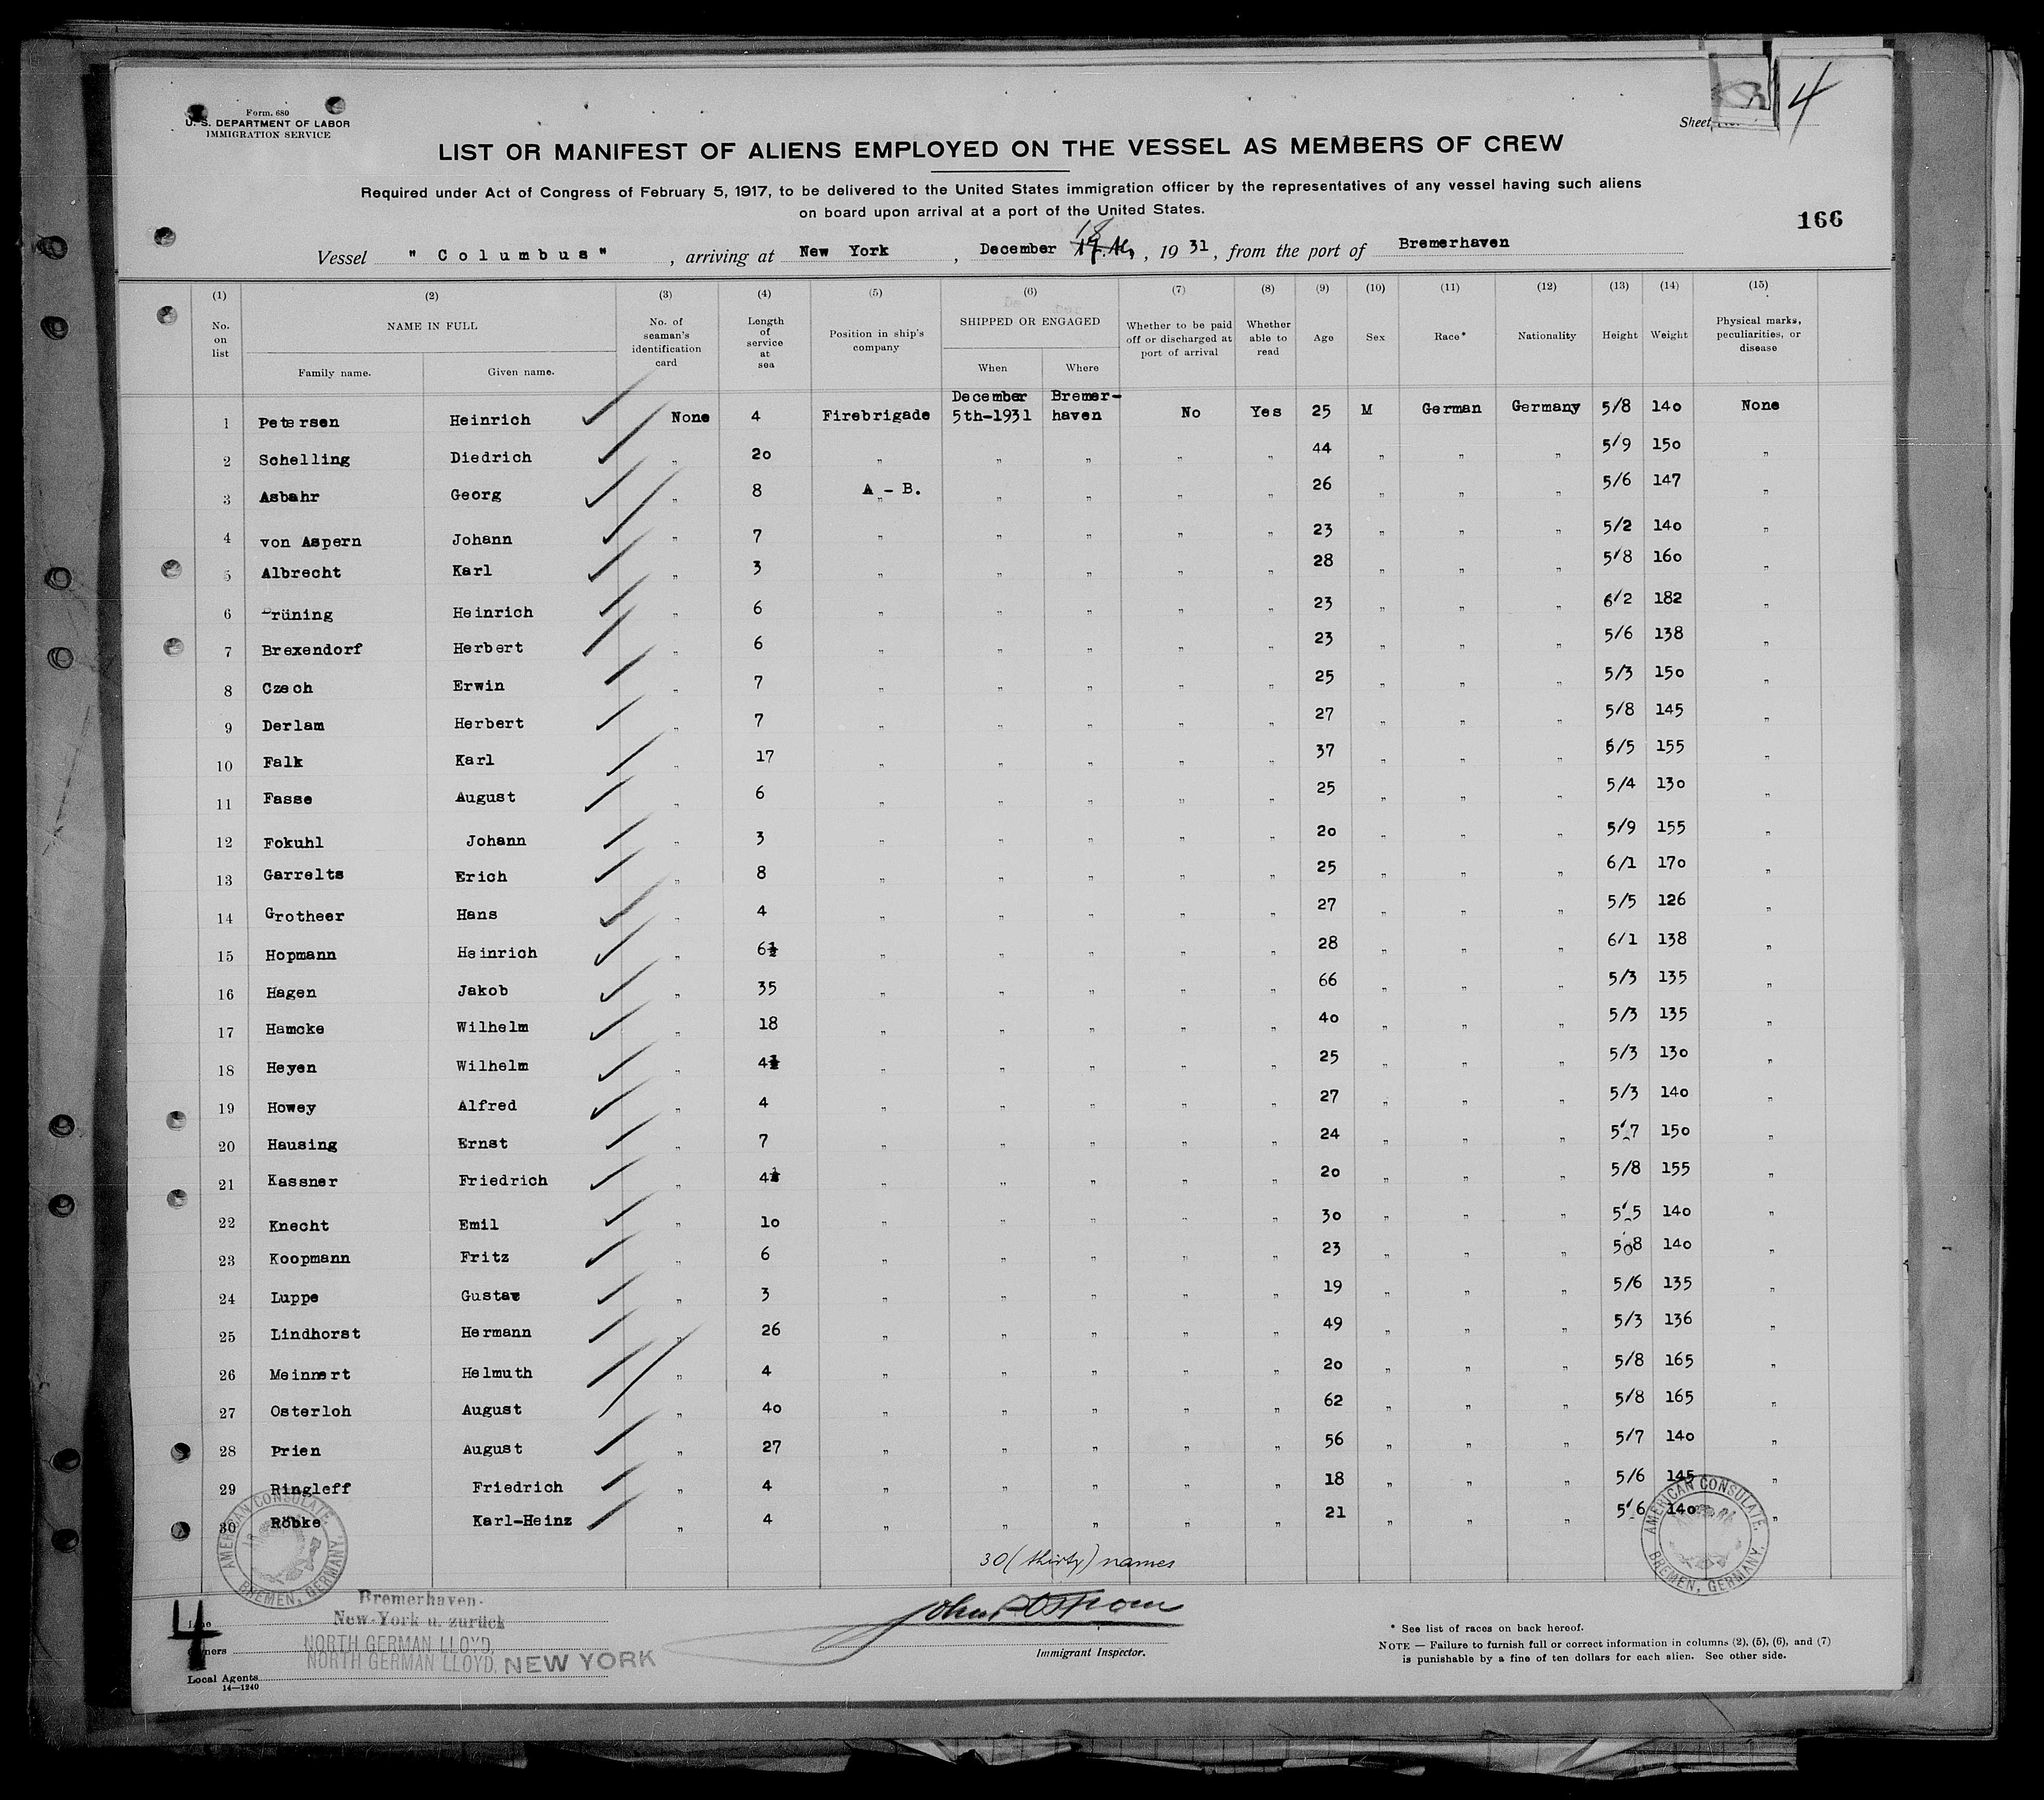 Form. 680
U. S. DEPARTMENT OF LABOR
IMMIGRATION SERVICE
Sheet
4
LIST OR MANIFEST OF ALIENS EMPLOYED ON THE VESSEL AS MEMBERS OF CREW
Required under Act of Congress of February 5, 1917, to be delivered to the United States immigration officer by the representatives of any vessel having such aliens
on board upon arrival at a port of the United States.
166
18
Vessel " Columbus " , arriving at New York , December 17. , 19 31, from the port of Bremerhaven
(1) (2) (3) (4) (5) (6) (7) (8) (9) (10) (11) (12) (13) (14) (15)
No. on list NAME IN FULL Family name. Given name. No. of seaman's identification card Length of service at sea Position in ship's company SHIPPED OR ENGAGED When Where Whether to be paid off or discharged at port of arrival Whether able to read Age Sex Race* Nationality Height Weight Physical marks, peculiarities, or disease
1 Petersen Heinrich None 4 Firebrigade December 5th-1931 Bremer-haven No Yes 25 M German Germany 5/8 140 None
2 Schelling Diedrich " 20 " " " " " 44 " " " 5/9 150 "
3 Asbahr Georg " 8 A - B. " " " " 26 " " " 5/6 147 "
4 von Aspern Johann " 7 " " " " " 23 " " " 5/2 140 "
5 Albrecht Karl " 3 " " " " " 28 " " " 5/8 160 "
6 rüning Heinrich " 6 " " " " " 23 " " " 6/2 182 "
7 Brexendorf Herbert " 6 " " " " " 23 " " " 5/6 138 "
8 Czech Erwin " 7 " " " " " 25 " " " 5/3 150 "
9 Derlam Herbert " 7 " " " " " 27 " " " 5/8 145 "
10 Falk Karl " 17 " " " " " 37 " " " 5/5 155 "
11 Fasse August " 6 " " " " " 25 " " " 5/4 130 "
12 Fokuhl Johann " 3 " " " " " 20 " " " 5/9 155 "
13 Garrelts Erich " 8 " " " " " 25 " " " 6/1 170 "
14 Grotheer Hans " 4 " " " " " 27 " " " 5/5 126 "
15 Hopmann Heinrich " 6½ " " " " " 28 " " " 6/1 138 "
16 Hagen Jakob " 35 " " " " " 66 " " " 5/3 135 "
17 Hamcke Wilhelm " 18 " " " " " 40 " " " 5/3 135 "
18 Heyen Wilhelm " 4½ " " " " " 25 " " " 5/3 130 "
19 Howey Alfred " 4 " " " " " 27 " " " 5/3 140 "
20 Hausing Ernst " 7 " " " " " 24 " " " 5/7 150 "
21 Kassner Friedrich " 4½ " " " " " 20 " " " 5/8 155 "
22 Knecht Emil " 10 " " " " " 30 " " " 5/5 140 "
23 Koopmann Fritz " 6 " " " " " 23 " " " 5/8 140 "
24 Luppe Gustav " 3 " " " " " 19 " " " 5/6 135 "
25 Lindhorst Hermann " 26 " " " " " 49 " " " 5/3 136 "
26 Meinnert Helmuth " 4 " " " " " 20 " " " 5/8 165 "
27 Osterloh August " 40 " " " " " 62 " " " 5/8 165 "
28 Prien August " 27 " " " " " 56 " " " 5/7 140 "
29 Ringleff Friedrich " 4 " " " " " 18 " " " 5/6 145 "
30 Röbke Karl-Heinz " 4 " " " " " 21 " " " 5/6 140 "
AMERICAN CONSULATE. BREMEN, GERMANY.
AMERICAN CONSULATE. BREMEN, GERMANY.
30 (thirty) names
4
Bremerhaven-
New-York u. zurück
Owners NORTH GERMAN LLOYD,
NORTH GERMAN LLOYD, NEW YORK
Local Agents
14—1240
Immigrant Inspector.
* See list of races on back hereof.
NOTE — Failure to furnish full or correct information in columns (2), (5), (6), and (7)
is punishable by a fine of ten dollars for each alien. See other side.